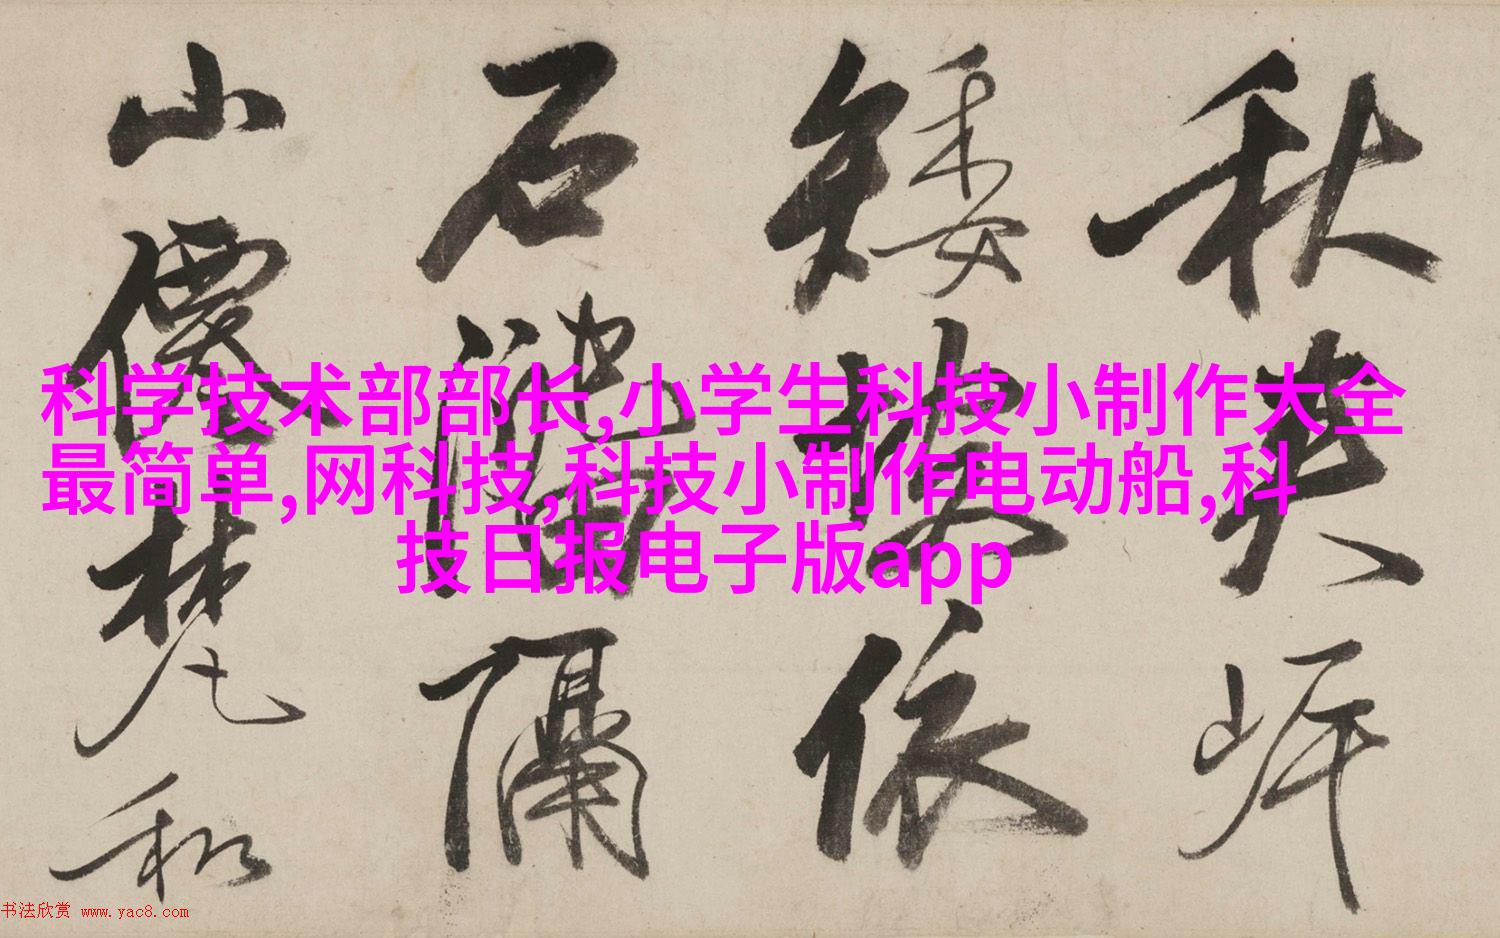 科学技术部部长,小学生科技小制作大全
最简单,网科技,科技小制作电动船,科
技日报电子版app
秋
矮 依
石 隔
山 和
书法欣赏 www.yac8.com